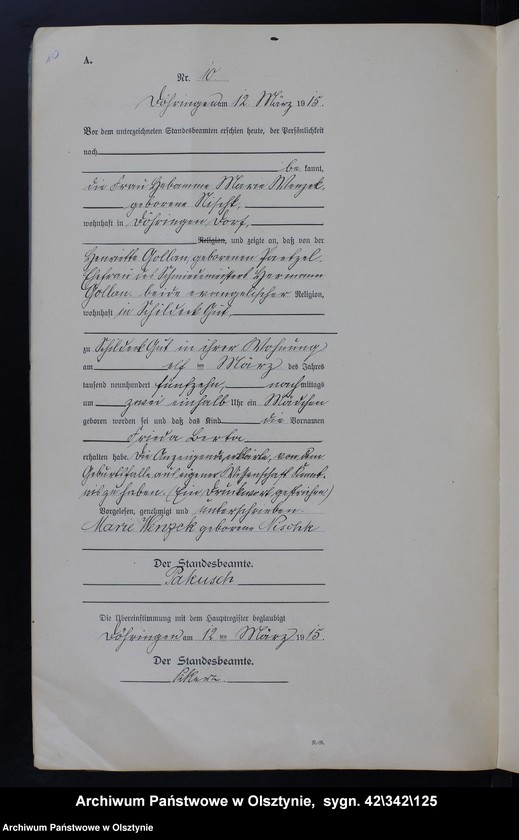 A.
Nr. 10.
Döhringen am 12 März 1915.
Vor dem unterzeichneten Standesbeamten erschien heute, der Persönlichkeit
nach
be kannt,
die Frau Hebamme Marie Wenzek,
geborene Nischk,
wohnhaft in Döhringen Dorf,
Religion, und zeigte an, daß von der
Henriette Gollan, geborenen Paetzel,
Ehefrau des Schmiedemeisters Hermann
Gollan, beide evangelischer Religion,
wohnhaft in Schildeck Gut,
zu Schildeck Gut in ihrer Wohnung
am elf ten März des Jahres
tausend neunhundert fünfzehn, nach mittags
um zwei einhalb Uhr ein Mädchen
geboren worden sei und daß das Kind die Vornamen
Frieda Berta
erhalten habe. Die Anzeigende erklärte, von dem
Geburtsfalle aus eigener Wissenschaft Kennt-
nis zu haben. (Ein Druckwort gestrichen)
Vorgelesen, genehmigt und unterschrieben
Marie Wenzek geborene Nischk
Der Standesbeamte.
Pakusch
Die Übereinstimmung mit dem Hauptregister beglaubigt
Döhringen am 12 ten März 1915.
Der Standesbeamte.
Archiwum Państwowe w Olsztynie, sygn. 42\342\125
Archiwum Państwowe w Olsztynie